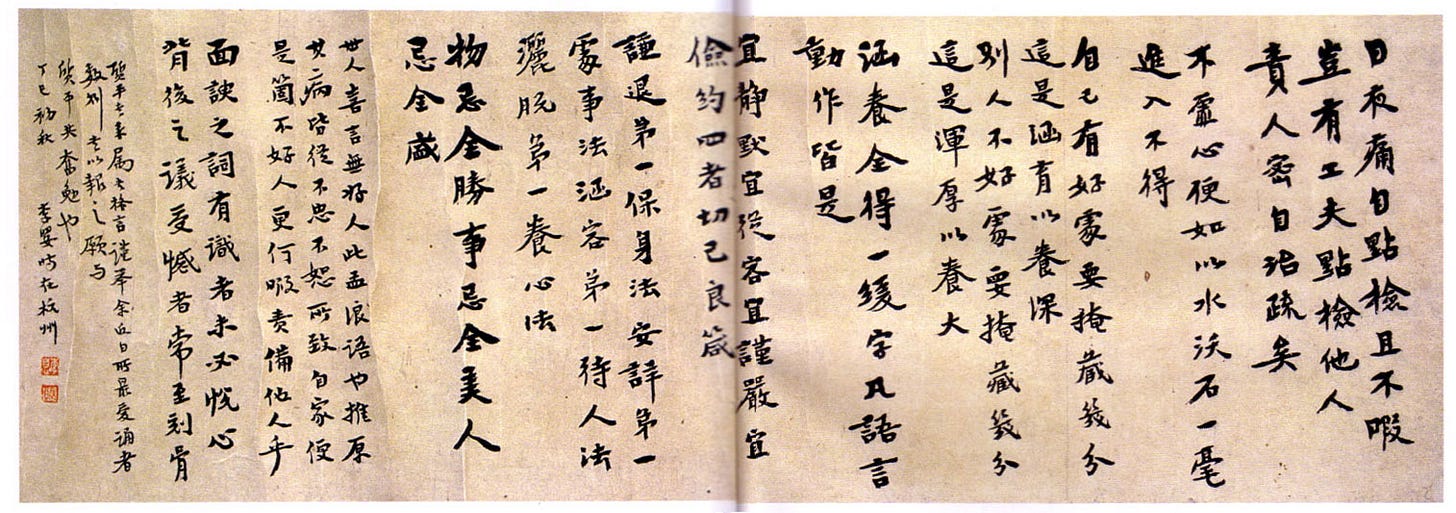 日夜痛自點檢且不暇
豈有工夫點檢他人
責人密自治疏矣
不虛心便如以水沃石一毫
進入不得
自己有好處要掩藏幾分
這是涵育以養深
別人不好處要掩藏幾分
這是渾厚以養大
涵養全得一緩字凡語言
動作皆是
宜靜默宜從容宜謹嚴宜
儉約四者切己良箴
謙退第一保身法安詳第一
處事法涵容第一待人法
灑脫第一養心法
物忌全勝事忌全美人
忌全盛
世人喜言無好人此孟浪語也推原
其病皆從不忠不恕所致自家便
是箇不好人更何暇責備他人乎
面諛之詞有識者未必悅心
背後之議受憾者常至刻骨
質平書來屬書格言謹奉余近日所最愛誦者
數則書以報之願与
質平共奮勉也
丁巳初秋
李嬰時在杭州